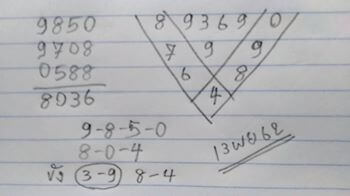 9850
9708
0588
8036
8 9369 0
7 9 9
6 8
4
9-8-5-0
8-0-4
3-9 8-4
13 พย 62